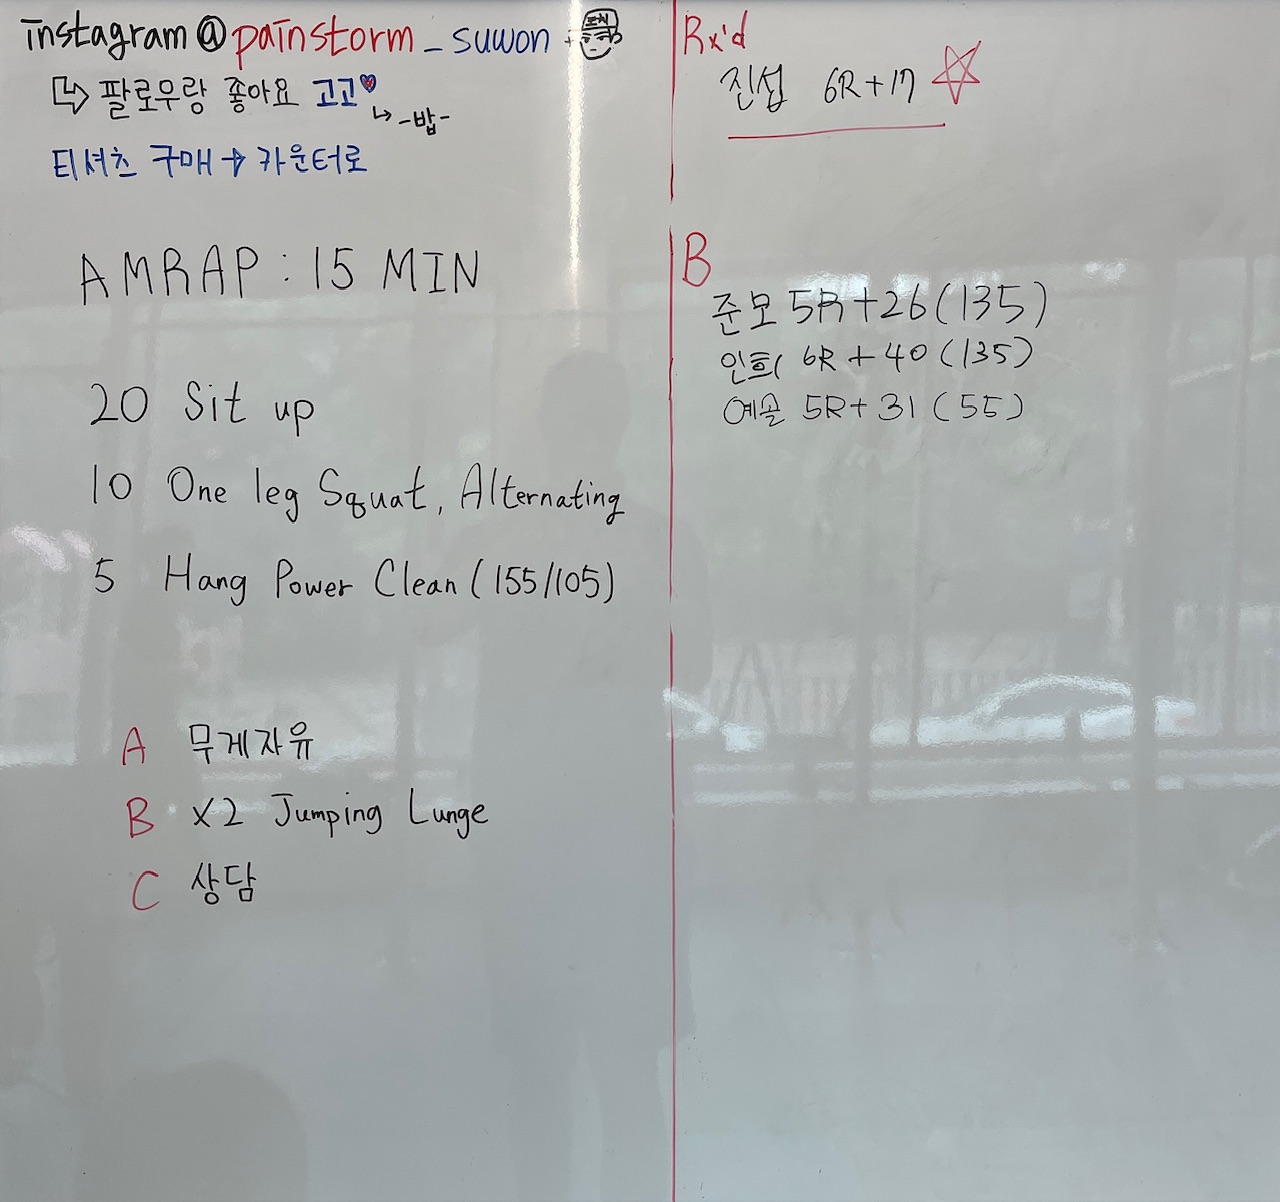 instagram@painstorm_suwon
팔로우랑 좋아요 고고
-밥-
티셔츠 구매 → 카운터로
AMRAP : 15 MIN
20 Sit up
10 One leg Squat, Alternating
5 Hang Power Clean (155/105)
A 무게자유
B X2 Jumping Lunge
C 상담
Rx'd
진섭 6R+17
B
준모 5R+26(135)
인희 6R+40(135)
예솔 5R+31(55)